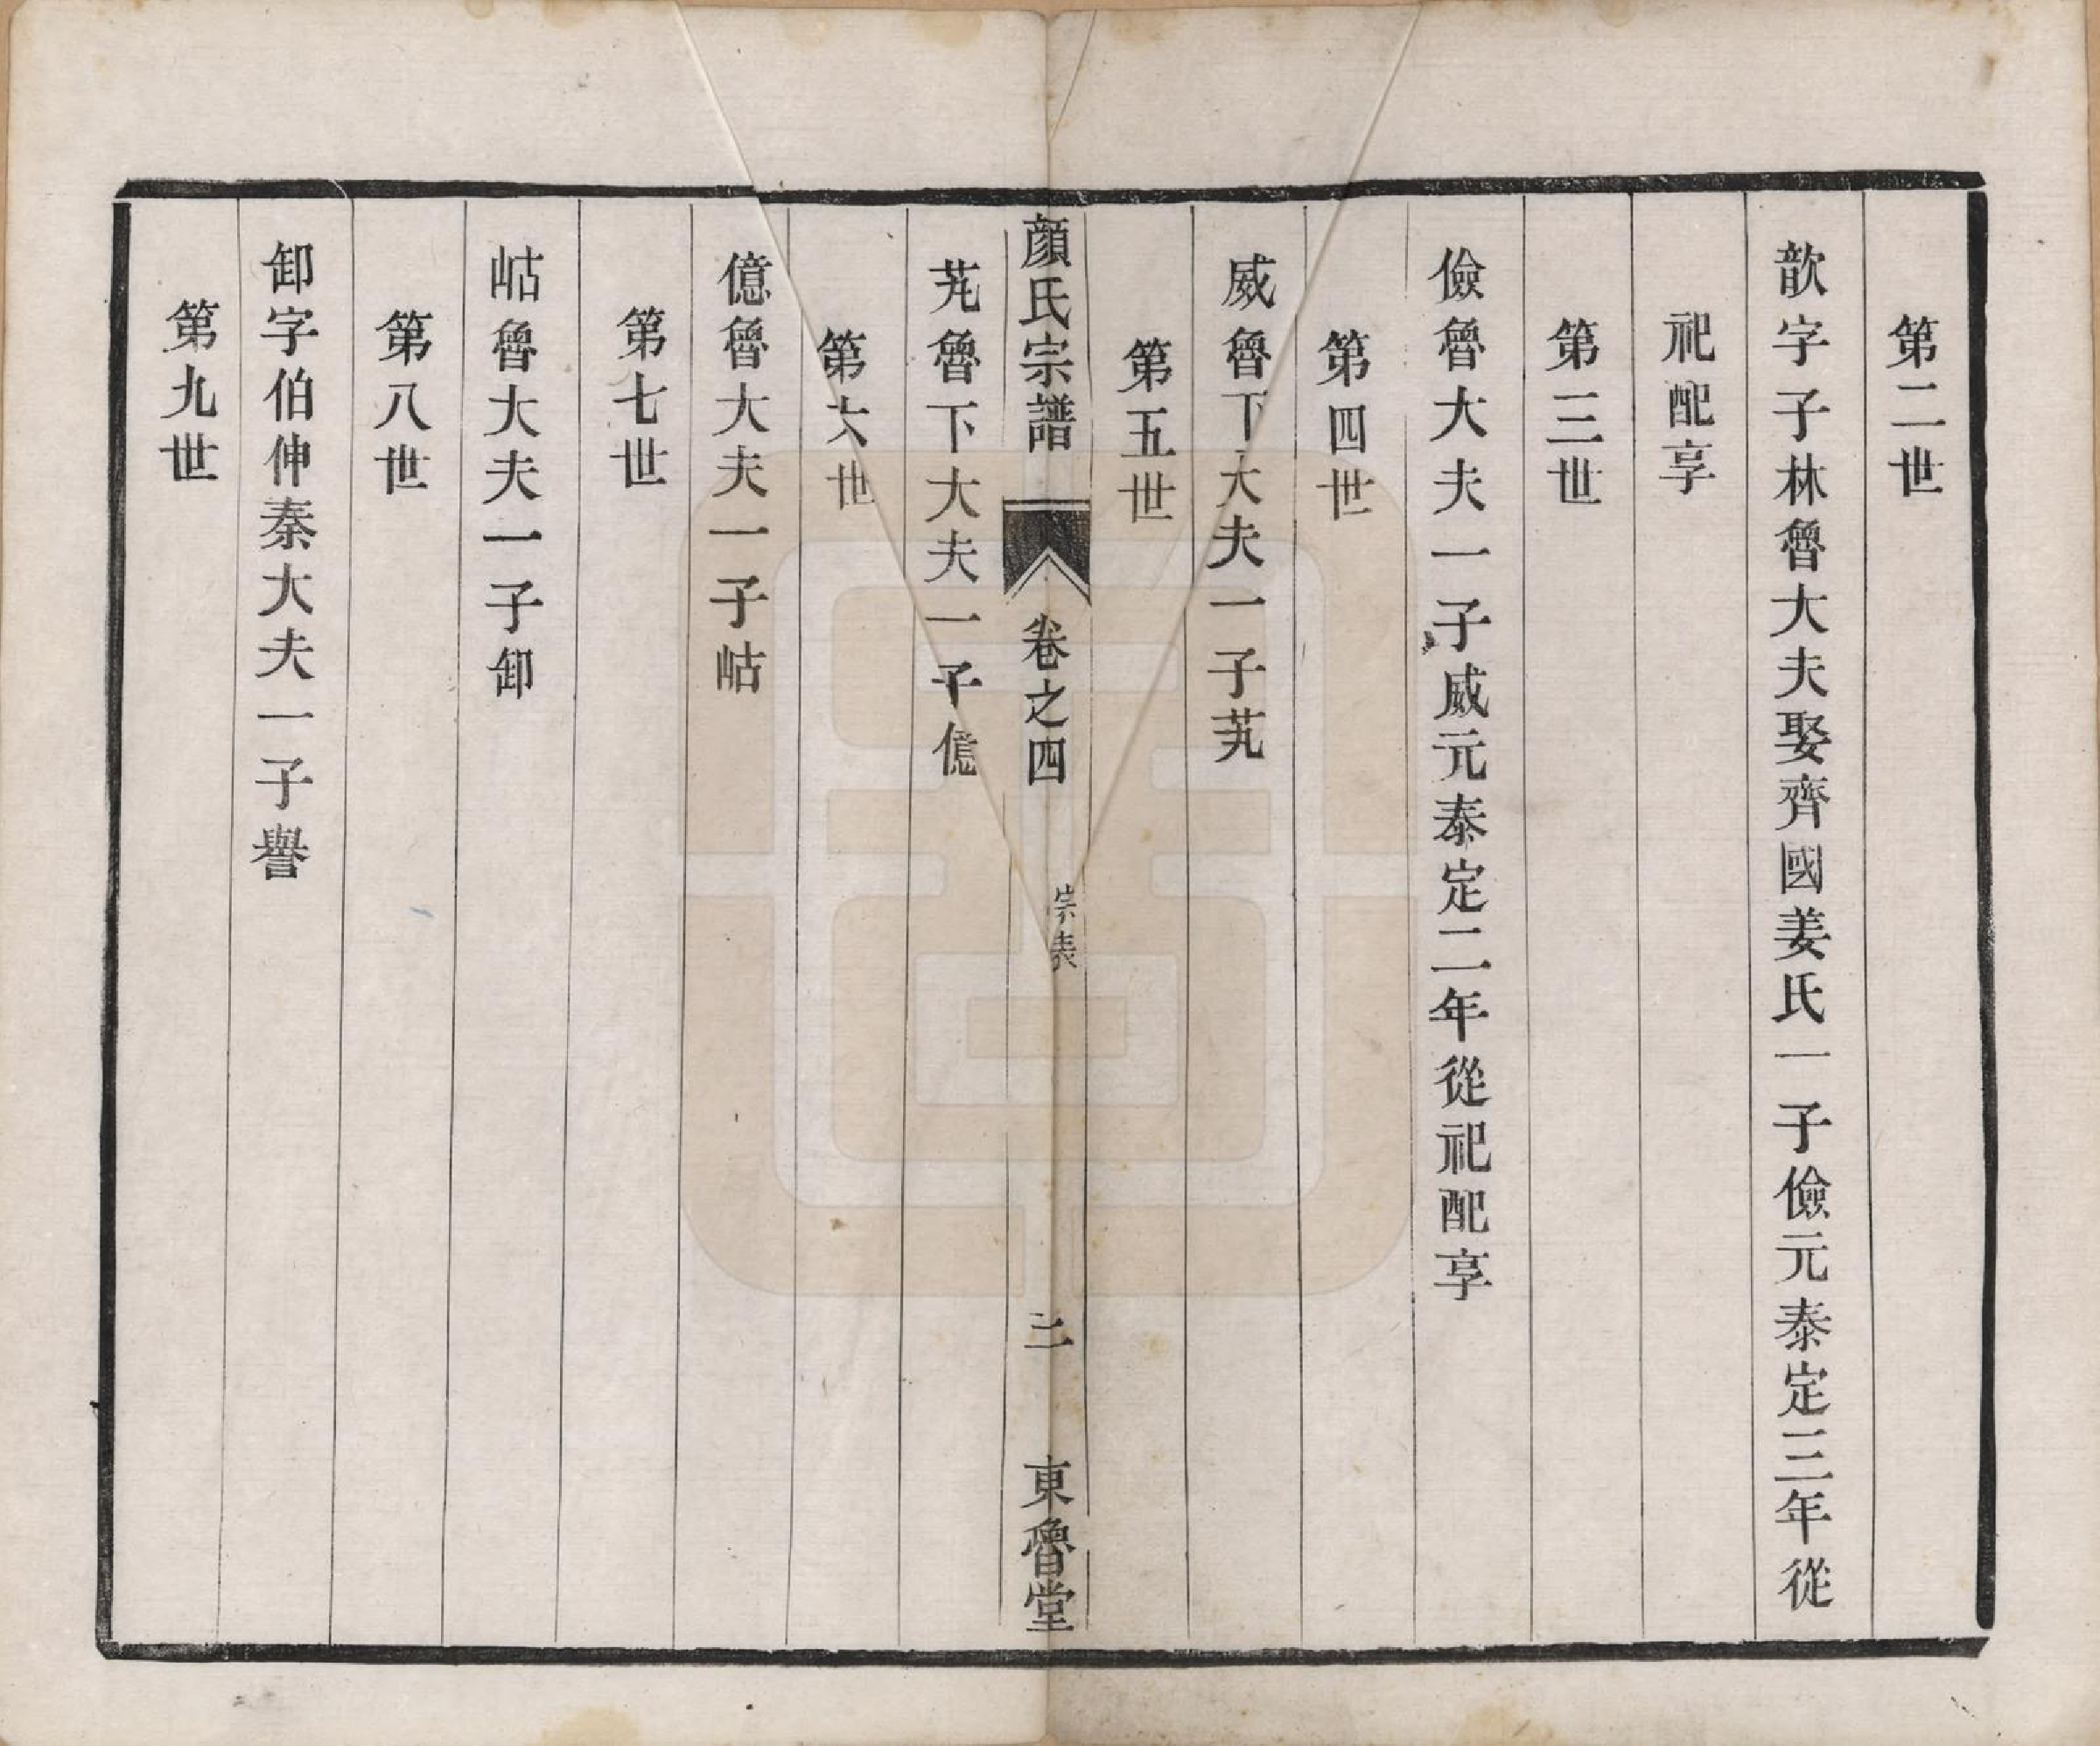 第二世
歆字子林魯大夫娶齊國姜氏一子儉元泰定三年從
祀配享
第三世
儉魯大夫一子威元泰定二年從祀配享
第四世
威魯下大夫一子芃
第五世
顏氏宗譜 卷之四 宗表 二 東魯堂
芃魯下大夫一子億
第六世
億魯大夫一子岵
第七世
岵魯大夫一子卸
第八世
卸字伯伸秦大夫一子譽
第九世